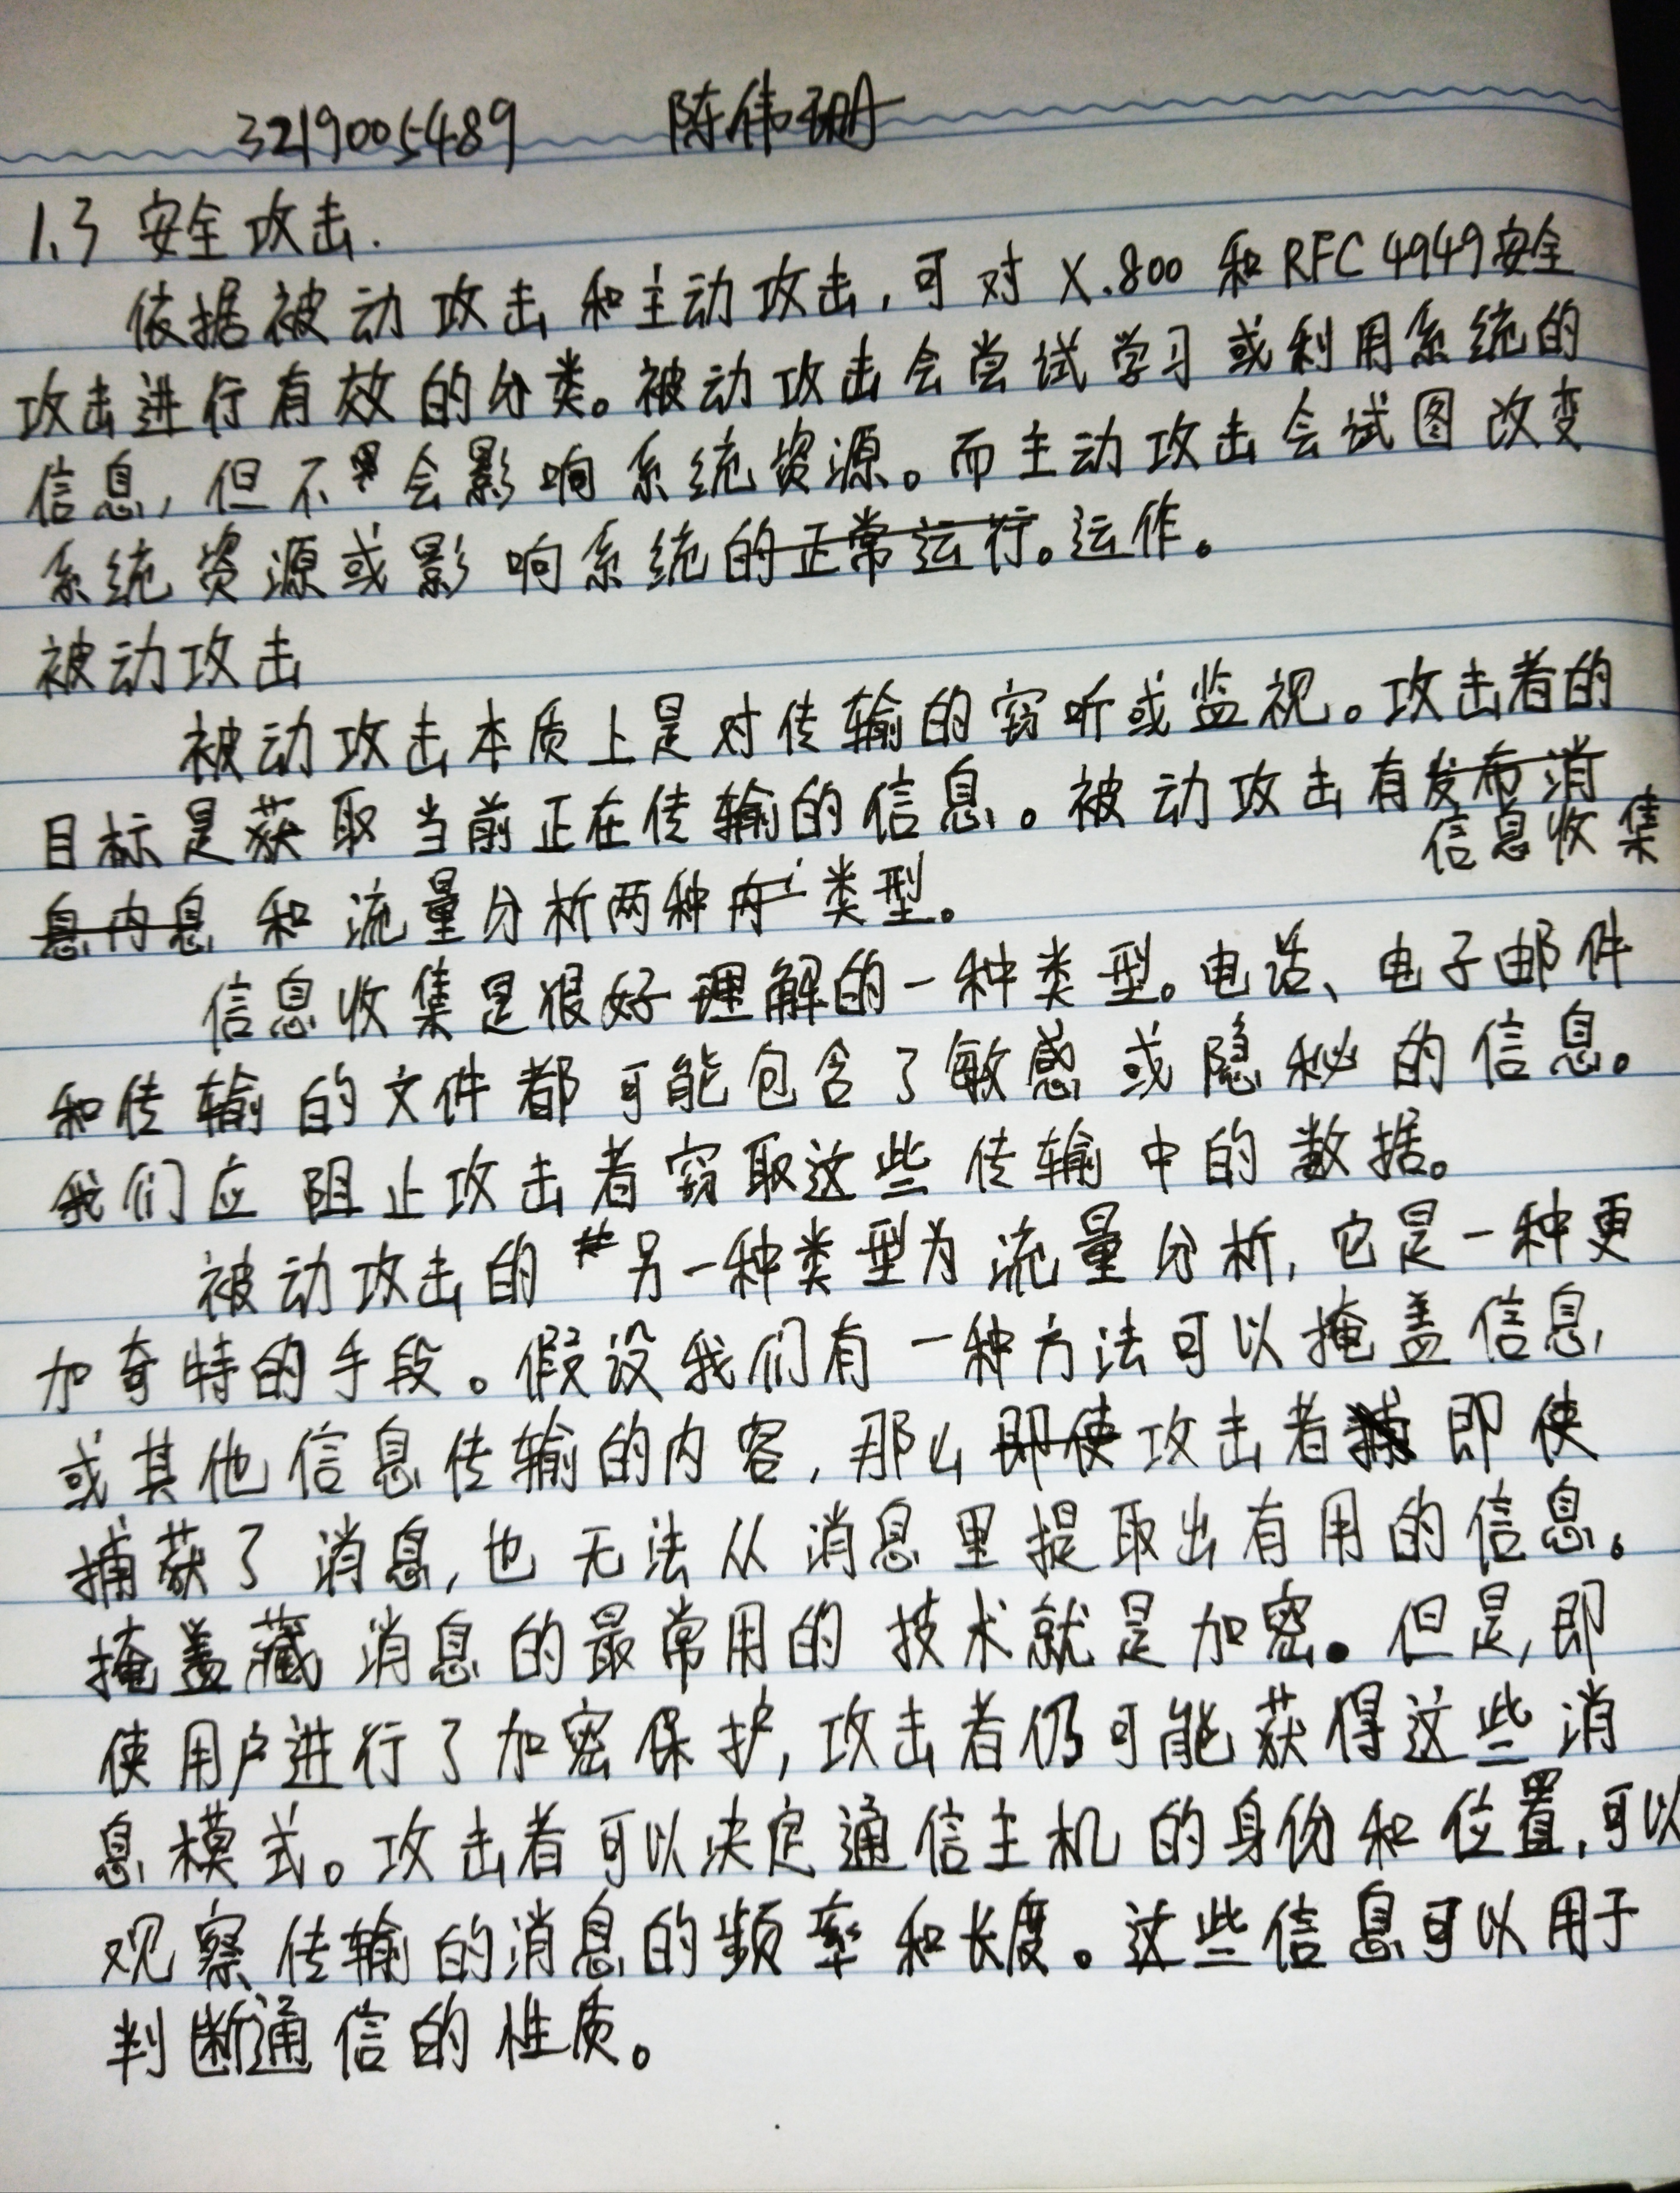 3219005489 陈伟珊
1.3 安全攻击.
依据被动攻击和主动攻击,可对 X.800 和 RFC 4949安全
攻击进行有效的分类。被动攻击会尝试学习或利用系统的
信息,但不会影响系统资源。而主动攻击会试图改变
系统资源或影响系统的正常运行。运作。
被动攻击
被动攻击本质上是对传输的窃听或监视。攻击者的
目标是获取当前正在传输的信息。被动攻击有发布消
信息收集
息内息 和流量分析两种内类型。
信息收集是很好理解的一种类型。电话、电子邮件
和传输的文件都可能包含了敏感或隐秘的信息。
我们应阻止攻击者窃取这些传输中的数据。
被动攻击的另一种类型为流量分析,它是一种更
加奇特的手段。假设我们有一种方法可以掩盖信息
或其他信息传输的内容,那么即使攻击者捕即使
捕获了消息,也无法从消息里提取出有用的信息。
掩盖藏消息的最常用的技术就是加密。但是,即
使用户进行了加密保护,攻击者仍可能获得这些消
息模式。攻击者可以决定通信主机的身份和位置,可以
观察传输的消息的频率和长度。这些信息可以用于
判断通信的性质。